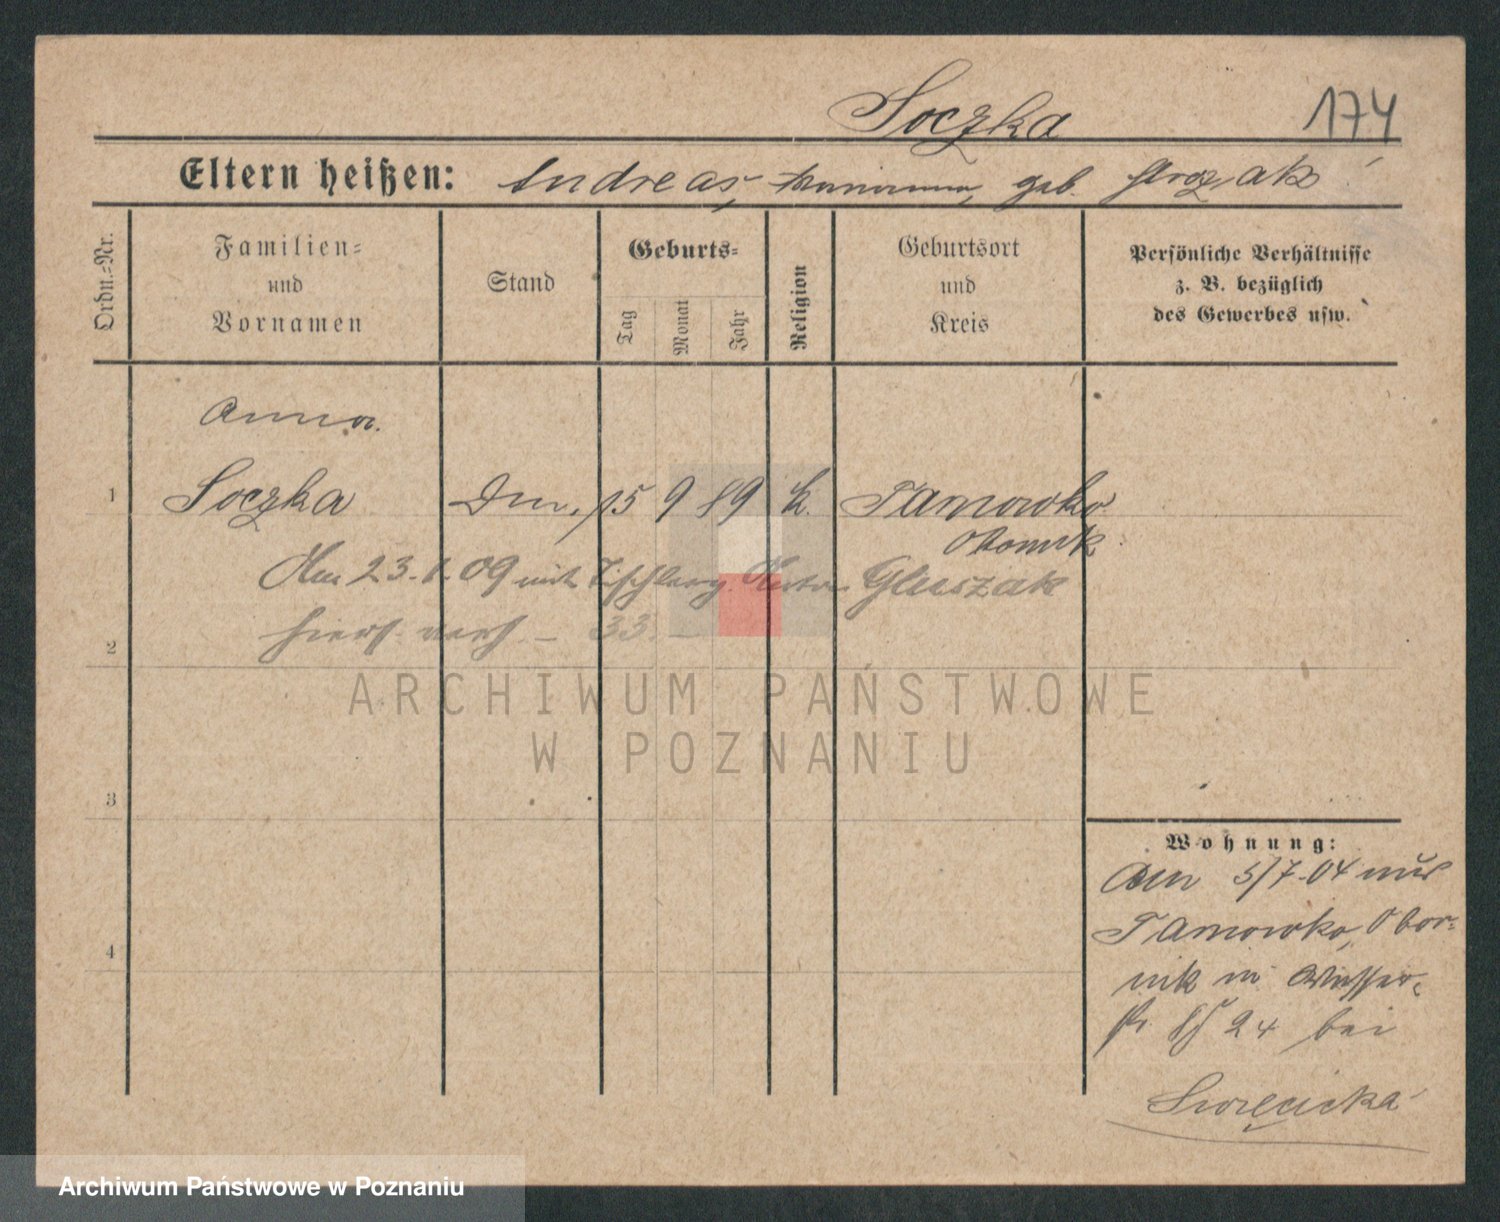 Soczka 174
Eltern heißen: Andreas, Marianna, geb.
Ordn.=Nr.
Familien=
und
Vornamen
Stand
Geburts=
Tag
Monat
Jahr
Religion
Geburtsort
und
Kreis
Persönliche Verhältnisse
z. B. bezüglich
des Gewerbes usw.
Anna.
1 Soczka Dm. 15 9 89 k. Tarnowko
Obornik
Am 23. 09 mit Tischlerg. Gluszak
2 hiers. verh. – 33.
ARCHIWUM PAŃSTWOWE
W POZNANIU
3
Wohnung:
Am 5/7.04 aus
Tarnowko, Obor-
4
nik in Wasser-
str. 24 bei
Archiwum Państwowe w Poznaniu